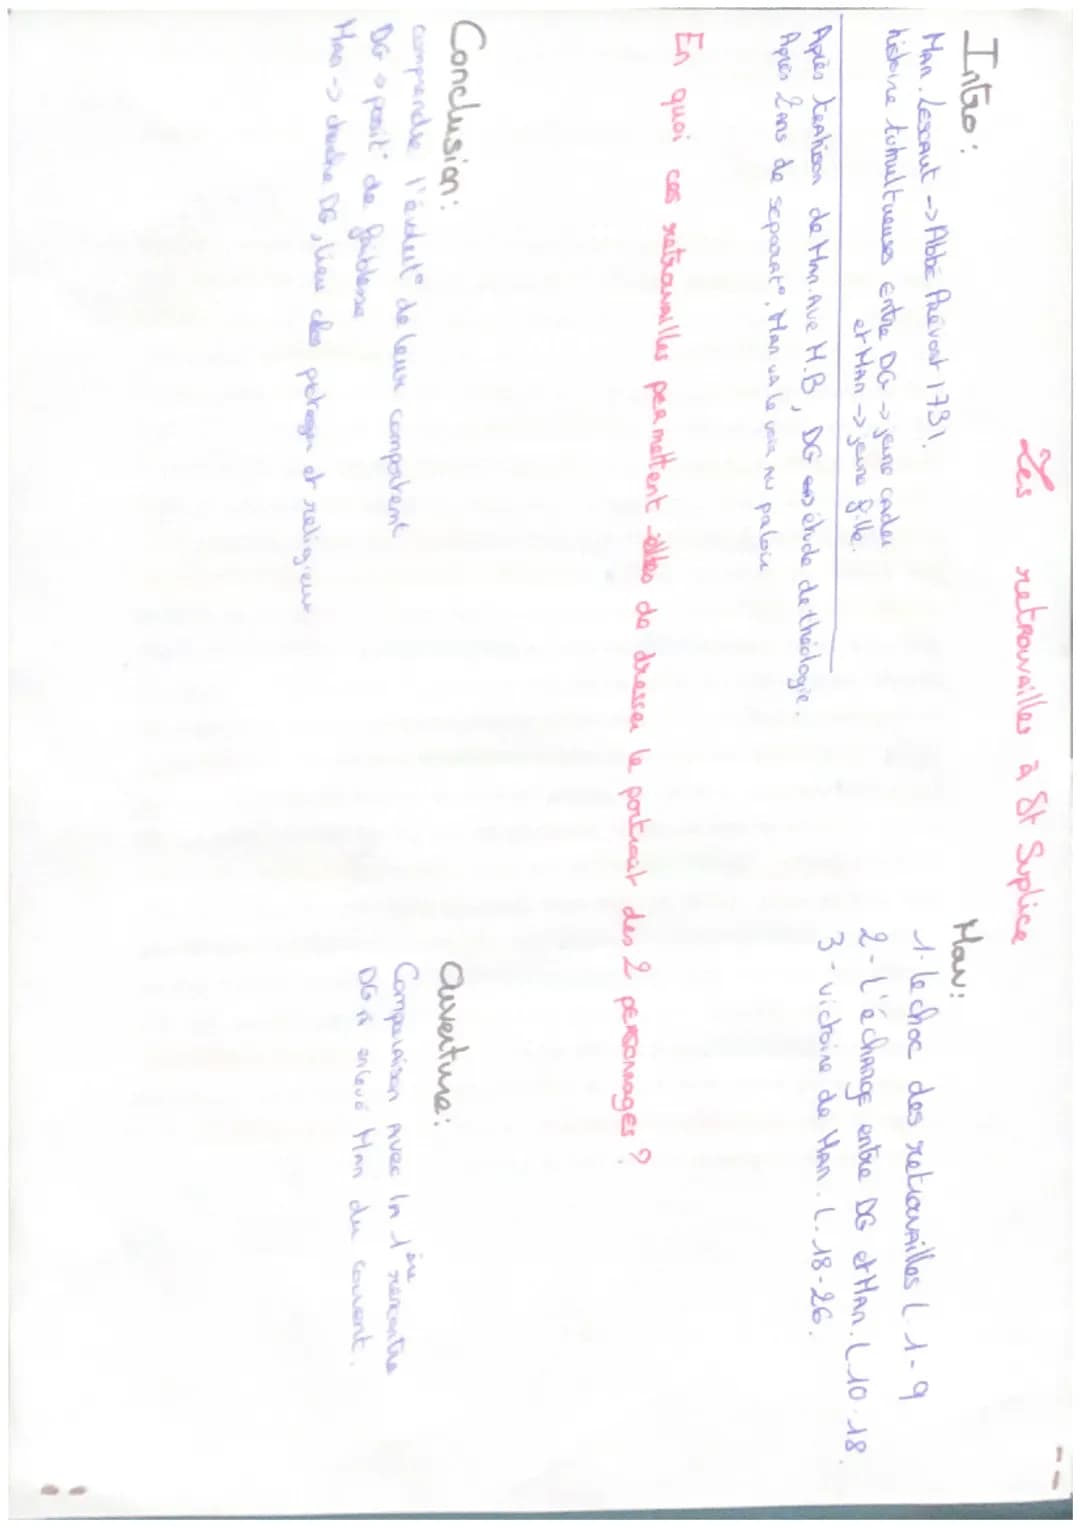 Les retrouvailles à St Suplice
Intro :
Man. Lescaut -> Abbé Prévost 1731.
histoire tumultueuses entre DG -> jeune cader
et Man -> jeune fille.
Après trahison de Man. Ave M.B, DG en étude de théologie.
Après 2 ans de séparat°, Man va le voir au paloir
Mov :
1- le choc des retrouvailles L 1-9
2 - L'échange entre DG et Man. L 10-18.
3 - victoire de Man. L. 18-26.
En quoi ces retrouvailles permettent-elles de dresser le portrait des 2 personnages ?
Conclusion :
comprendre l'évolut° de leur comportent
DG -> posit° de faiblesse
Man -> cherche DG, lieu clos et religieux
Ouverture :
Comparaison avec la 1ère rencontre
DG a enlevé Man du couvent.